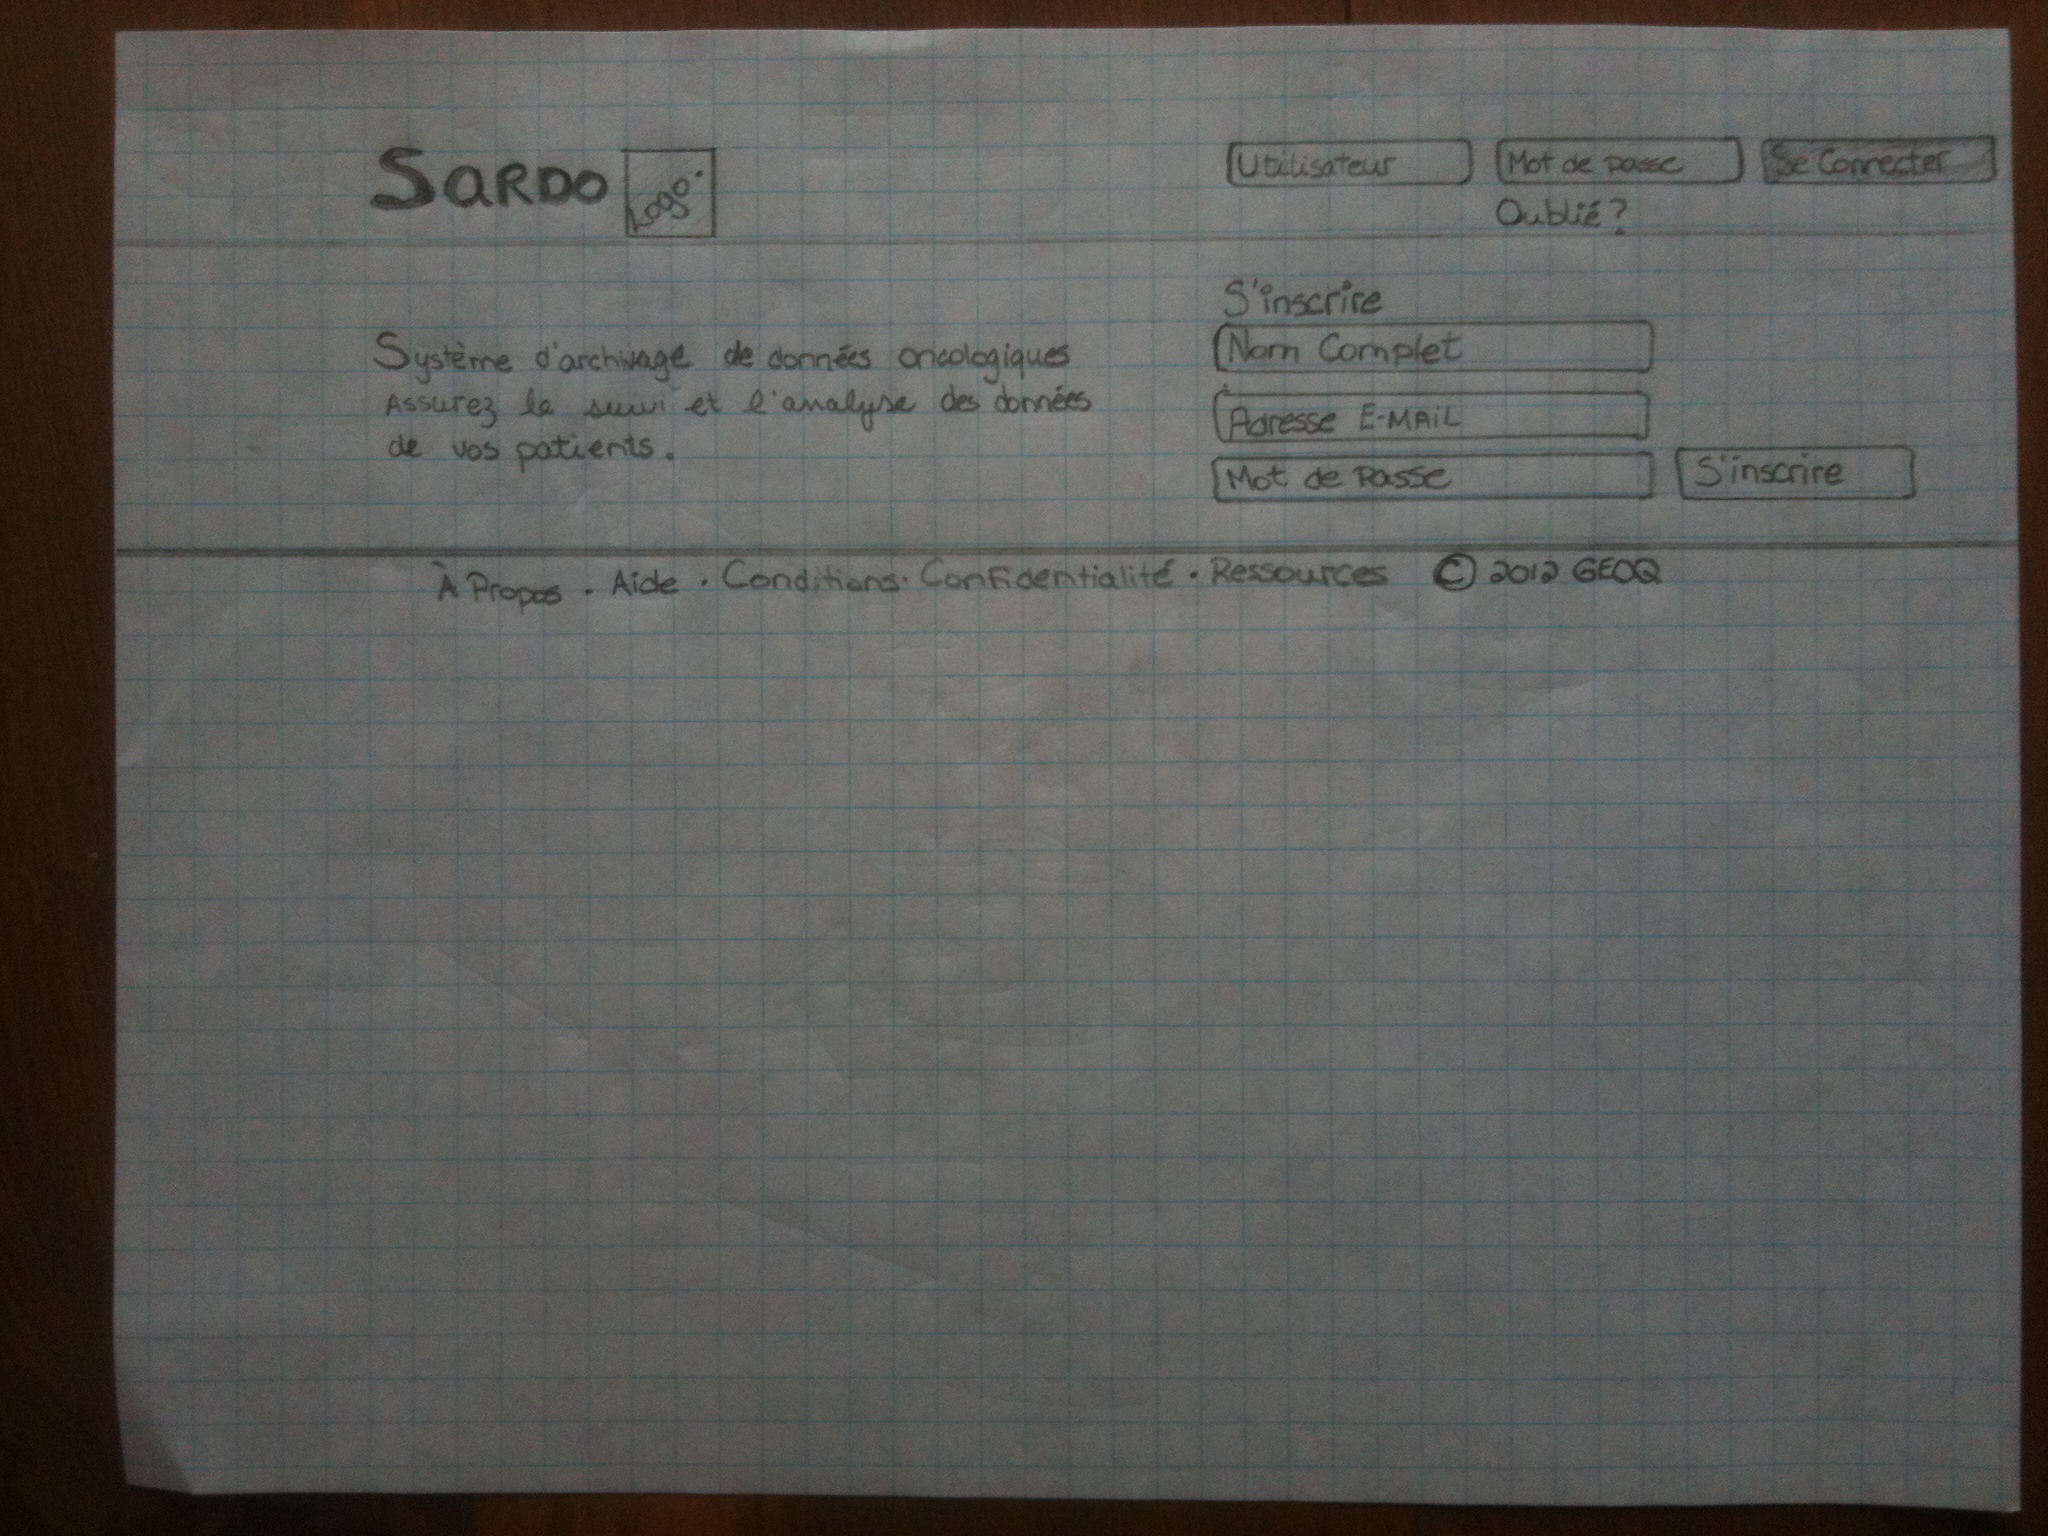 SARDO Logo
Utilisateur
Mot de passe
Se Connecter
Oublié?
Système d'archivage de données oncologiques
Assurez le suivi et l'analyse des données
de vos patients.
S'inscrire
Nom Complet
Adresse E-MAIL
Mot de Passe
S'inscrire
À Propos . Aide . Conditions . Confidentialité . Ressources © 2012 GEOQ